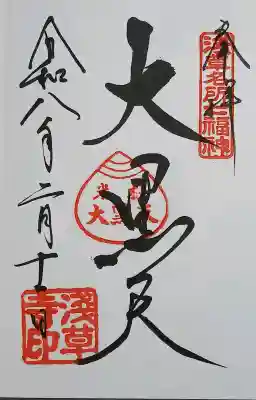 奉拝
浅草名所七福神
大黒天
大黒天
令和八年二月十一日
浅草寺印